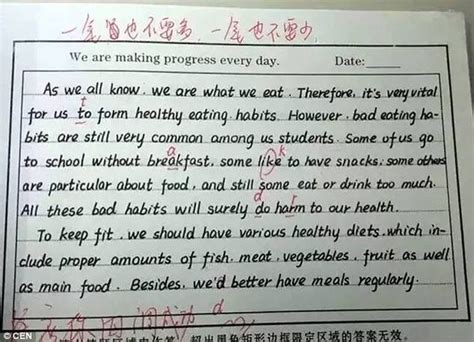 一笔画也不要多,一笔也不要少
We are making progress every day. Date:
As we all know, we are what we eat. Therefore, it's very vital
t
for us to form healthy eating habits. However, bad eating ha-
bits are still very common among us students. Some of us go
a k
to school without breakfast, some like to have snacks, some others
are particular about food, and still some eat or drink too much.
d r
All these bad habits will surely do harm to our health.
To keep fit, we should have various healthy diets, which in-
clude proper amounts of fish, meat, vegetables, fruit as well
as main food. Besides, we'd better have meals regularly.
d
超出黑色矩形边框限定区域的答案无效。
© CEN